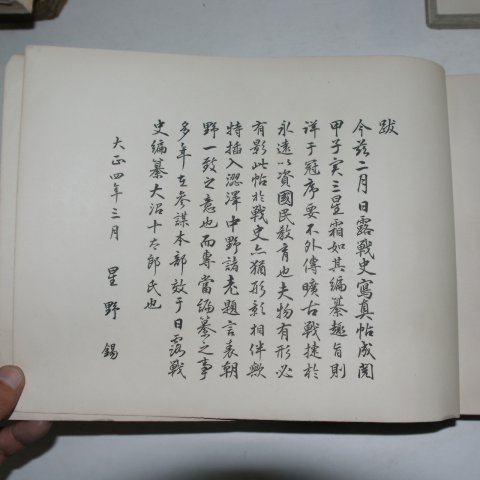 跋
今茲二月日露戰史寫真帖成閱
甲子実三星霜如其編纂趣旨則
詳于冠序要不外傳曠古戰捷於
永遠以資國民教育也夫物有形必
有影此帖於戰史亦猶形影相伴歟
特插入澀澤中野諸老題言表朝
野一致之意也而專當編纂之事
多年在參謀本部故于日露戰
史編纂大沼十太郎氏也
大正四年三月 星野錫